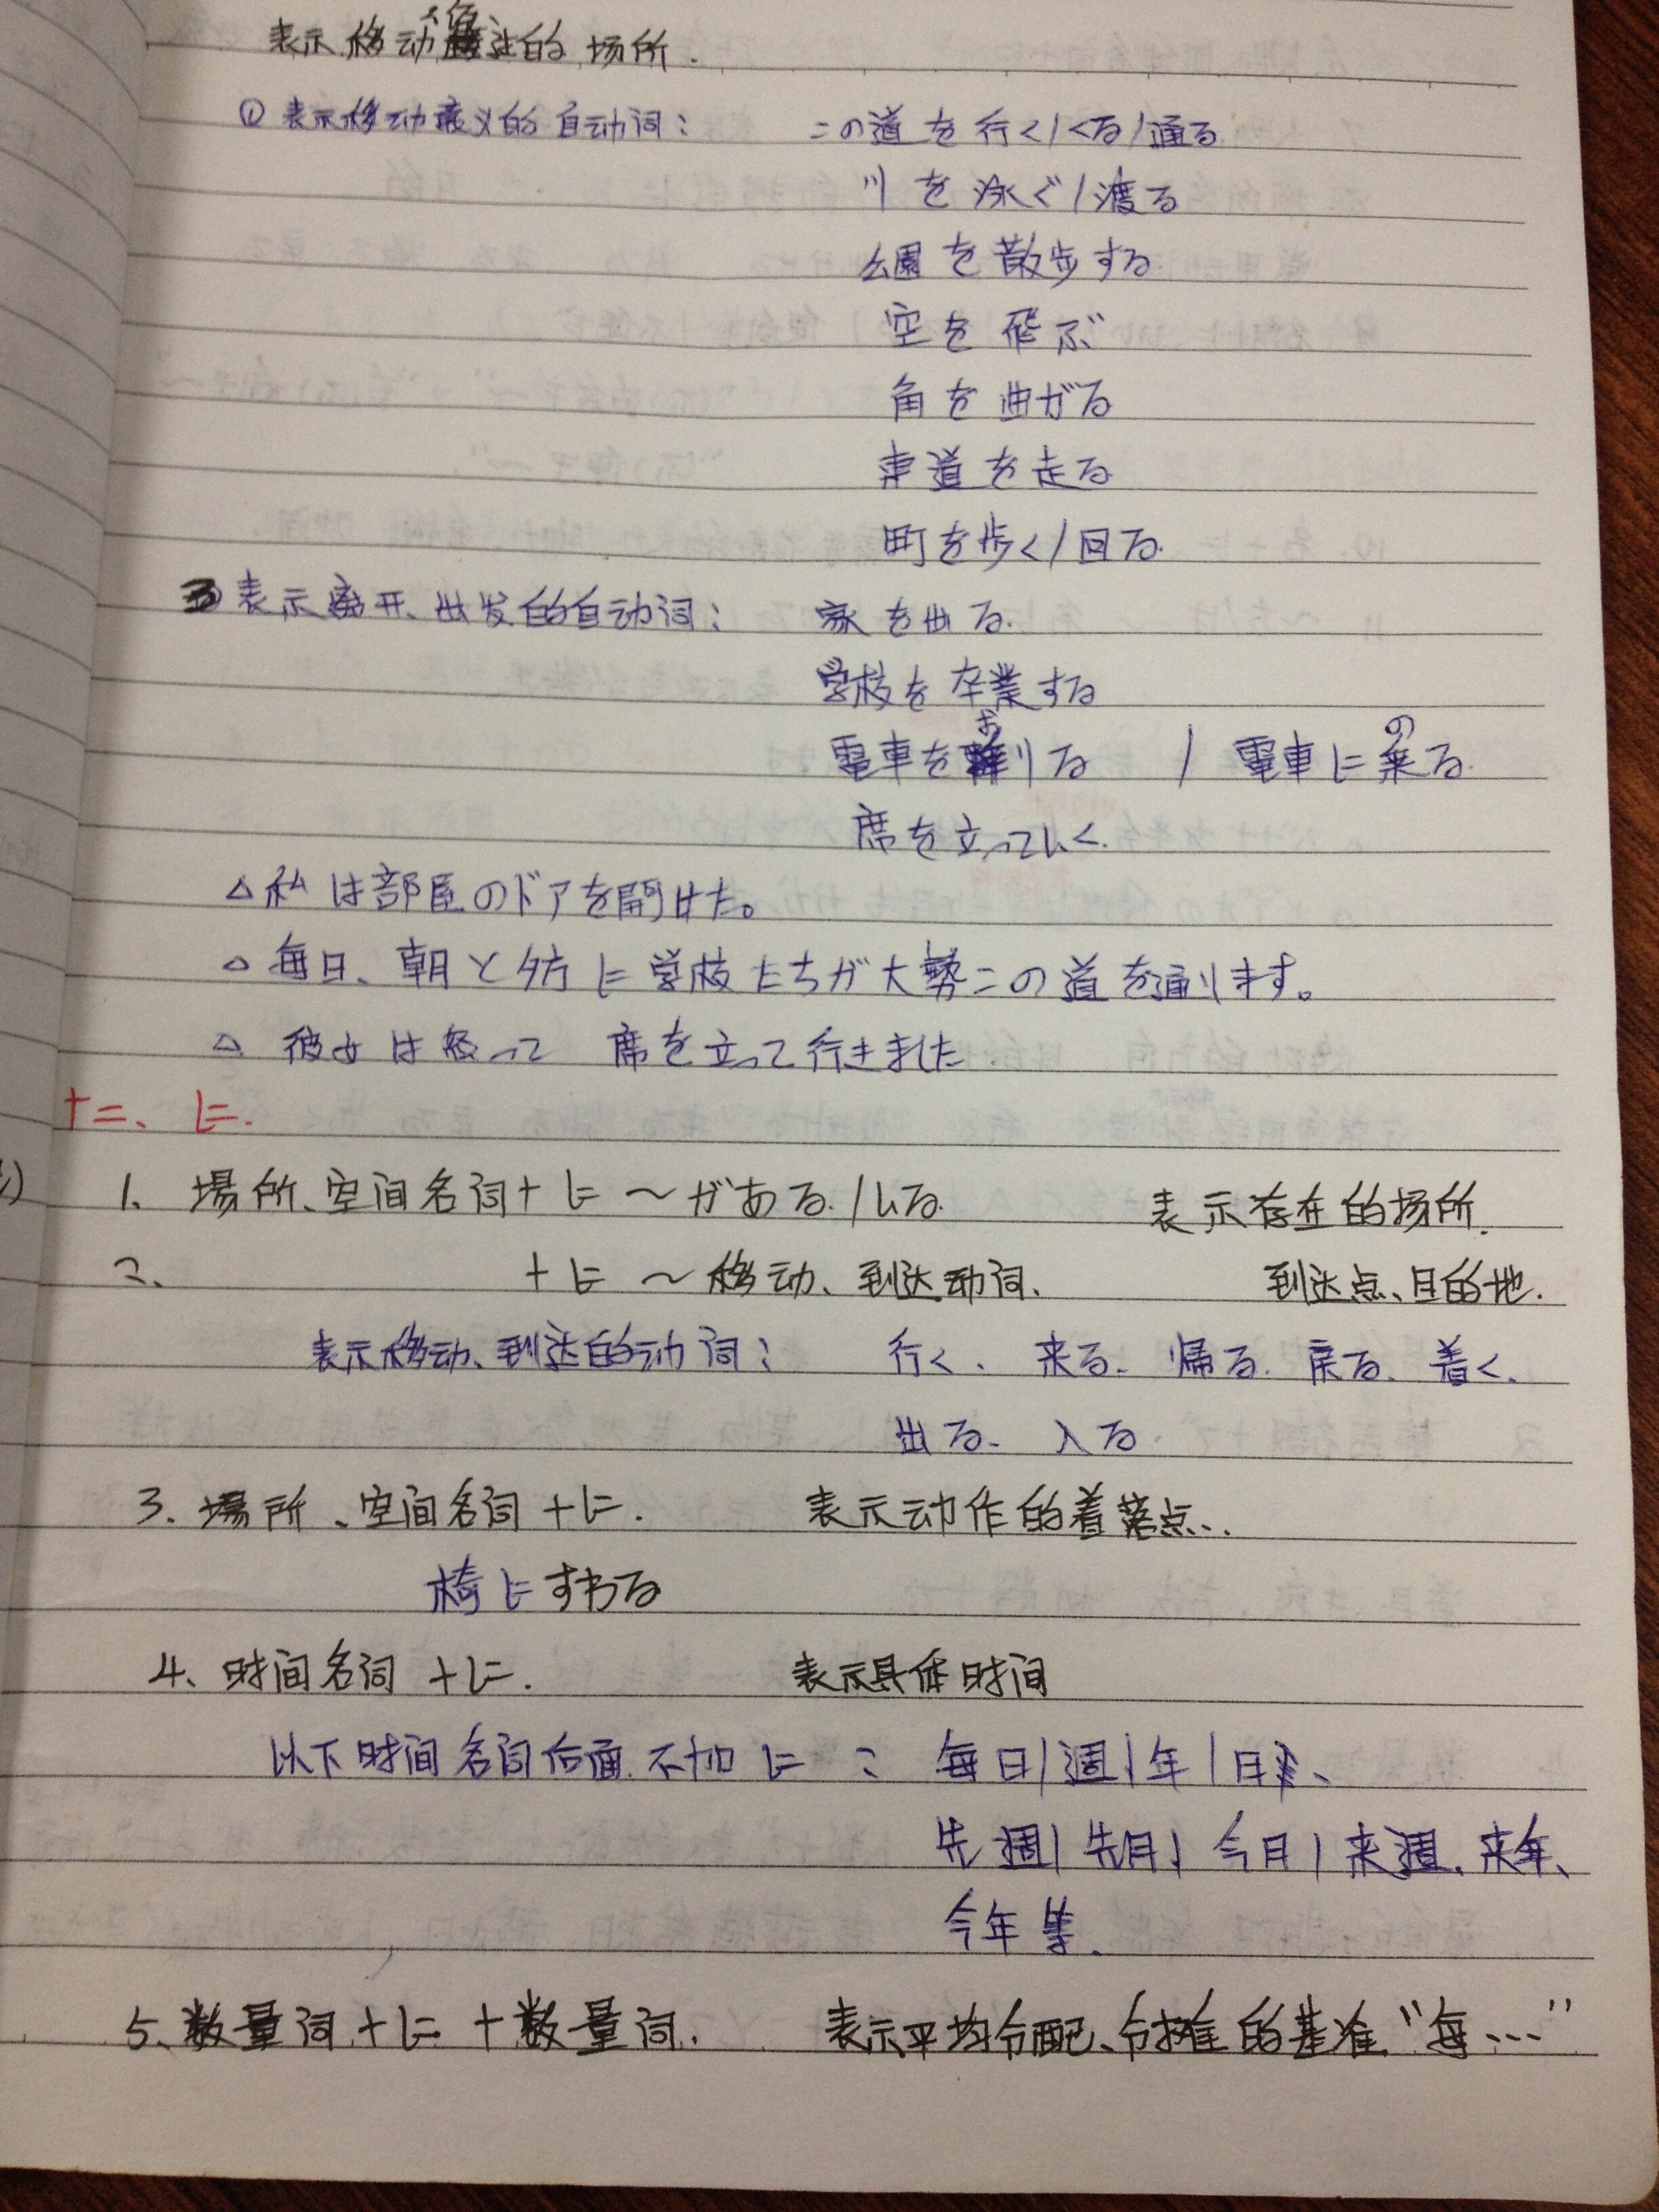 表示移动经过的场所.
① 表示移动意义的自动词: この道を行く/くる/通る.
川を泳ぐ/渡る
公園を散歩する.
空を飛ぶ
角を曲がる
車道を走る
町を歩く/回る.
③表示离开、出发的自动词: 家を出る.
学校を卒業する
電車を降りる / 電車に乗る.
お の
席を立っていく.
△私は部屋のドアを開けた。
△毎日、朝と夕方に学校たちが大勢この道を通ります。
△彼女は怒って 席を立って行きました.
十二、に.
1. 場所、空间名词+に ~がある./いる. 表示存在的场所.
2、 +に ~移动、到达动词、 到达点、目的地.
表示移动、到达的动词: 行く、来る、帰る.戻る、着く、
出る、入る.
3.場所、空间名词+に. 表示动作的着落点..
椅にすわる
4、时间名词 +に. 表示具体时间
以下时间名词后面不加に: 每日/週/年/日、
先週/先月/今月/来週、来年、
今年等.
5、数量词+に+数量词. 表示平均分配、分摊的基准."每…"